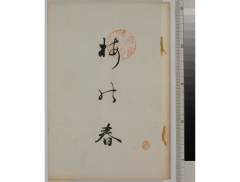 梅の春